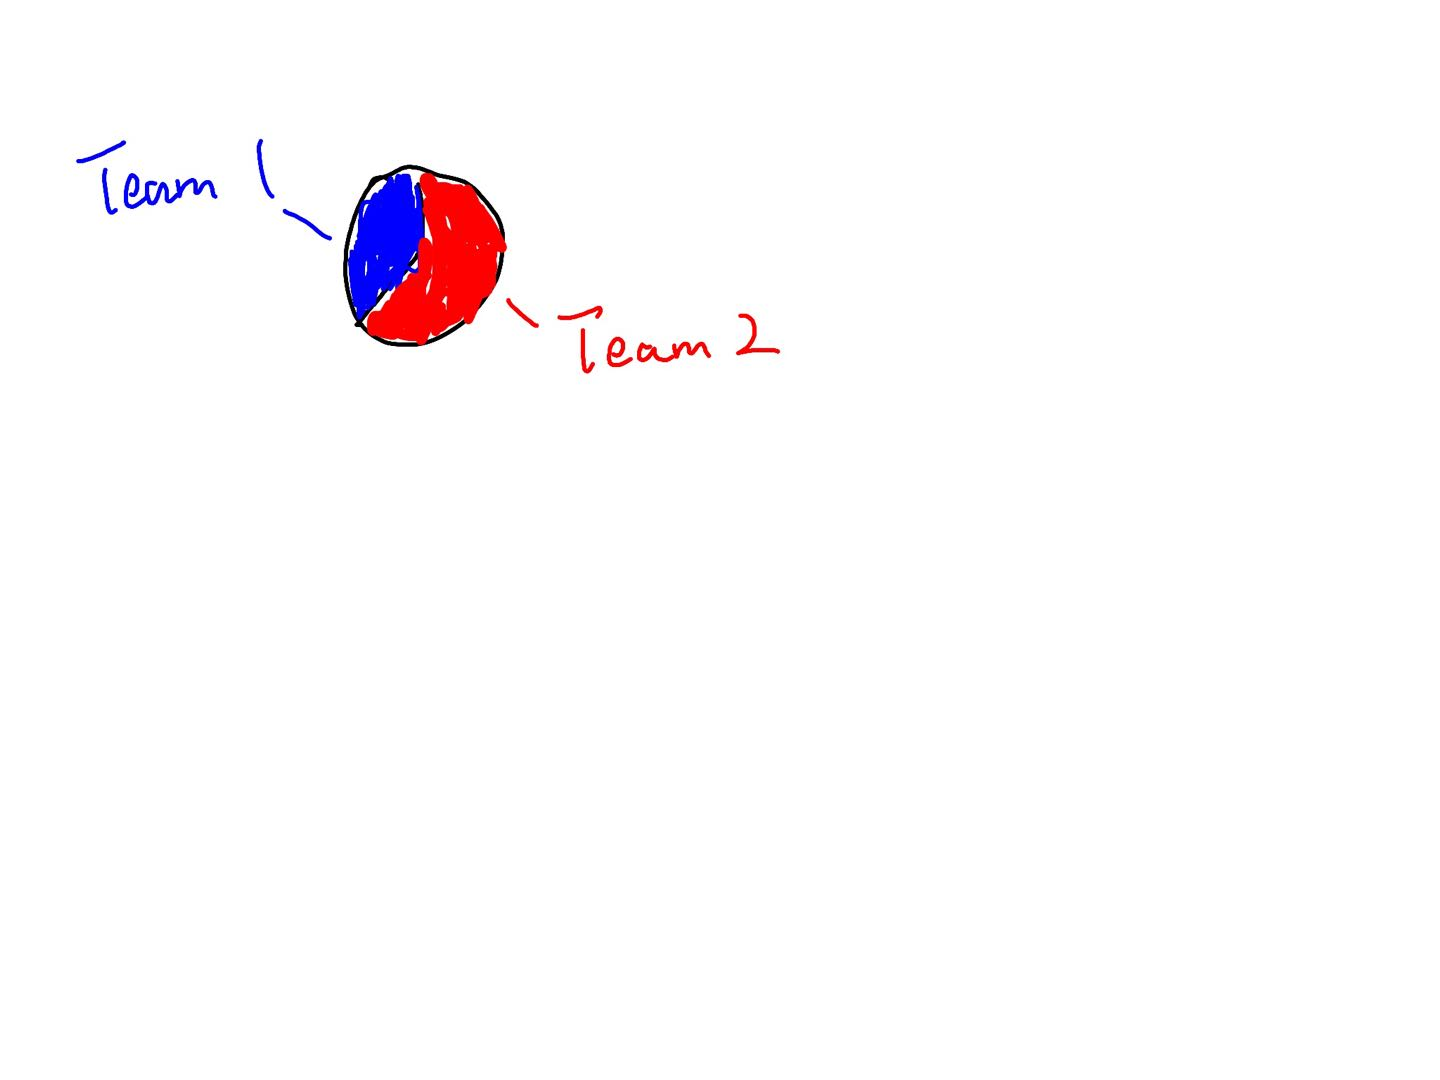 Team 1
Team 2